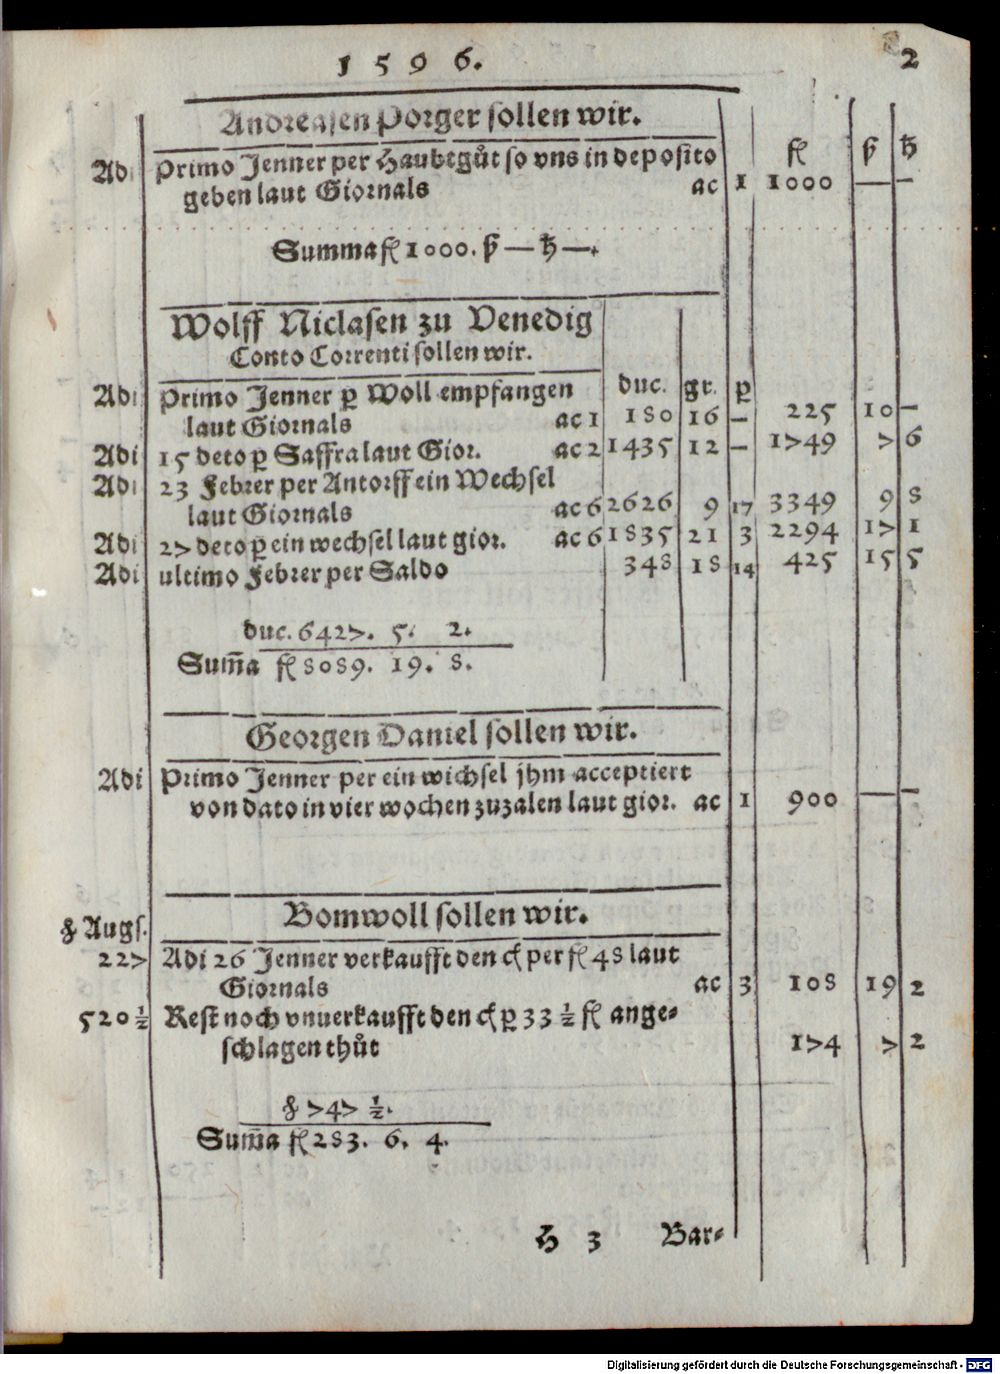 1596. 2
Andreasen Porger sollen wir.
fl ß h
Adi Primo Jenner per Haubtgůt so vns in deposito
geben laut Giornals ac 1 1000 — —
Summa fl 1000. ß — h —.
Wolff Niclasen zu Venedig
Conto Correnti sollen wir.
duc. gr. p
Adi Primo Jenner p Woll empfangen
laut Giornals ac 1 180 16 — 225 10 —
Adi 15 deto p Saffra laut Gior. ac 2 1435 12 — 1749 7 6
Adi 23 Febrer per Antorff ein Wechsel
laut Giornals ac 6 2626 9 17 3349 9 8
Adi 27 deto p ein wechsel laut gior. ac 6 1835 21 3 2294 17 1
Adi ultimo Febrer per Saldo 348 18 14 425 15 5
duc. 6427. 5. 2.
Sum̄a fl 8089. 19. 8.
Georgen Daniel sollen wir.
Adi Primo Jenner per ein wichsel jhm acceptiert
von dato in vier wochen zuzalen laut gior. ac 1 900 — —
Bomwoll sollen wir.
℔ Augs.
227 Adi 26 Jenner verkaufft den c per fl 48 laut
Giornals ac 3 108 19 2
520½ Rest noch vnuerkaufft den c p 33 ½ fl ange-
schlagen thůt 174 7 2
℔ 747 ½.
Sum̄a fl 283. 6. 4.
H 3 Bar-
Digitalisierung gefördert durch die Deutsche Forschungsgemeinschaft - DFG